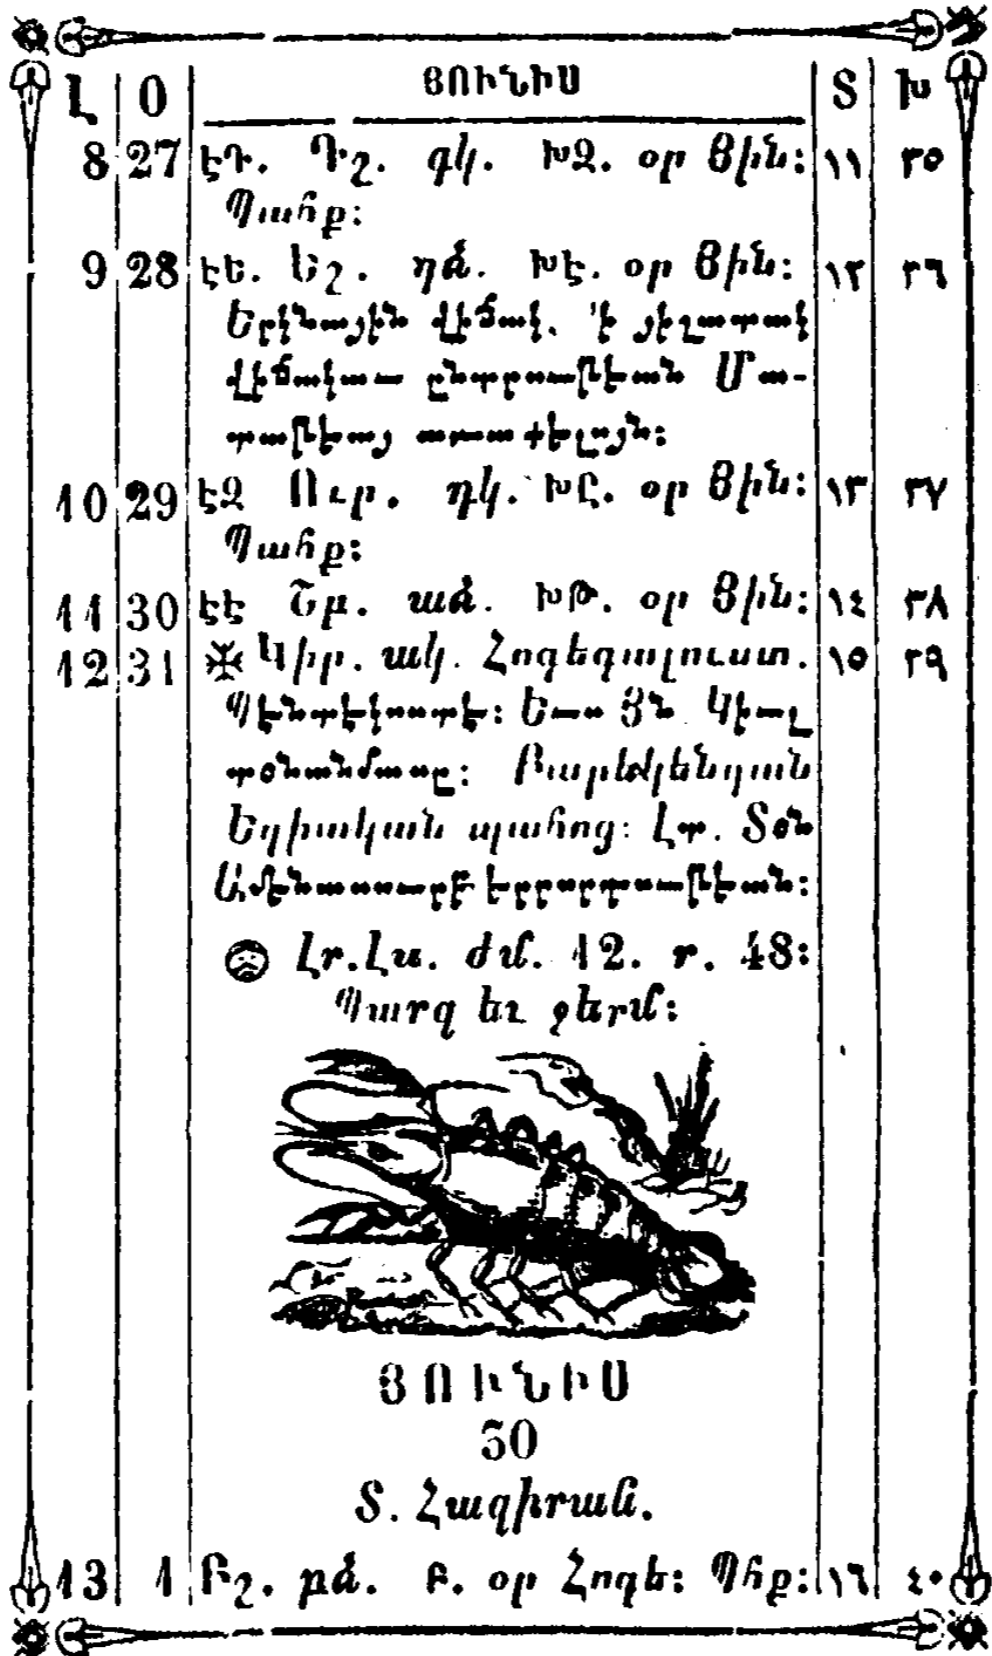 Լ Օ ՅՈՒՆԻՍ Տ Խ
8 27 ԷԴ. Դշ. գկ. ԽԶ. օր Յին: ١١ ٣٥
Պահք:
9 28 ԷԵ. Եշ. դձ. ԽԷ. օր Յին: ١٢ ٣٦
Երկնային վիճակ. ՚ի յիշատակ
վիճակաւ ընտրութեան Մա-
տաթեայ առաքելոյն:
10 29 ԷԶ Ուր. դկ. ԽԸ. օր Յին: ١٣ ٣٧
Պահք:
11 30 ԷԷ Շբ. աձ. ԽԹ. օր Յին: ١٤ ٣٨
12 31 Կիր. ակ. Հոգեգալուստ. ١٥ ٣٩
Պէնտէկոստէ: Եւս Յն Կիւլ
պօնանմասը: Բարեկենդան
Եղիական պահոց: Լտ. Տօն
Ամենասուրբ Երրորդութեան:
Լր.Լս. ժմ. 12. ր. 48:
Պարզ եւ ջերմ:
ՅՈՒՆԻՍ
30
Տ. Հազիրան.
13 1 Բշ. բձ. Բ. օր Հոգե: Պհք: ١٦ ٤٠